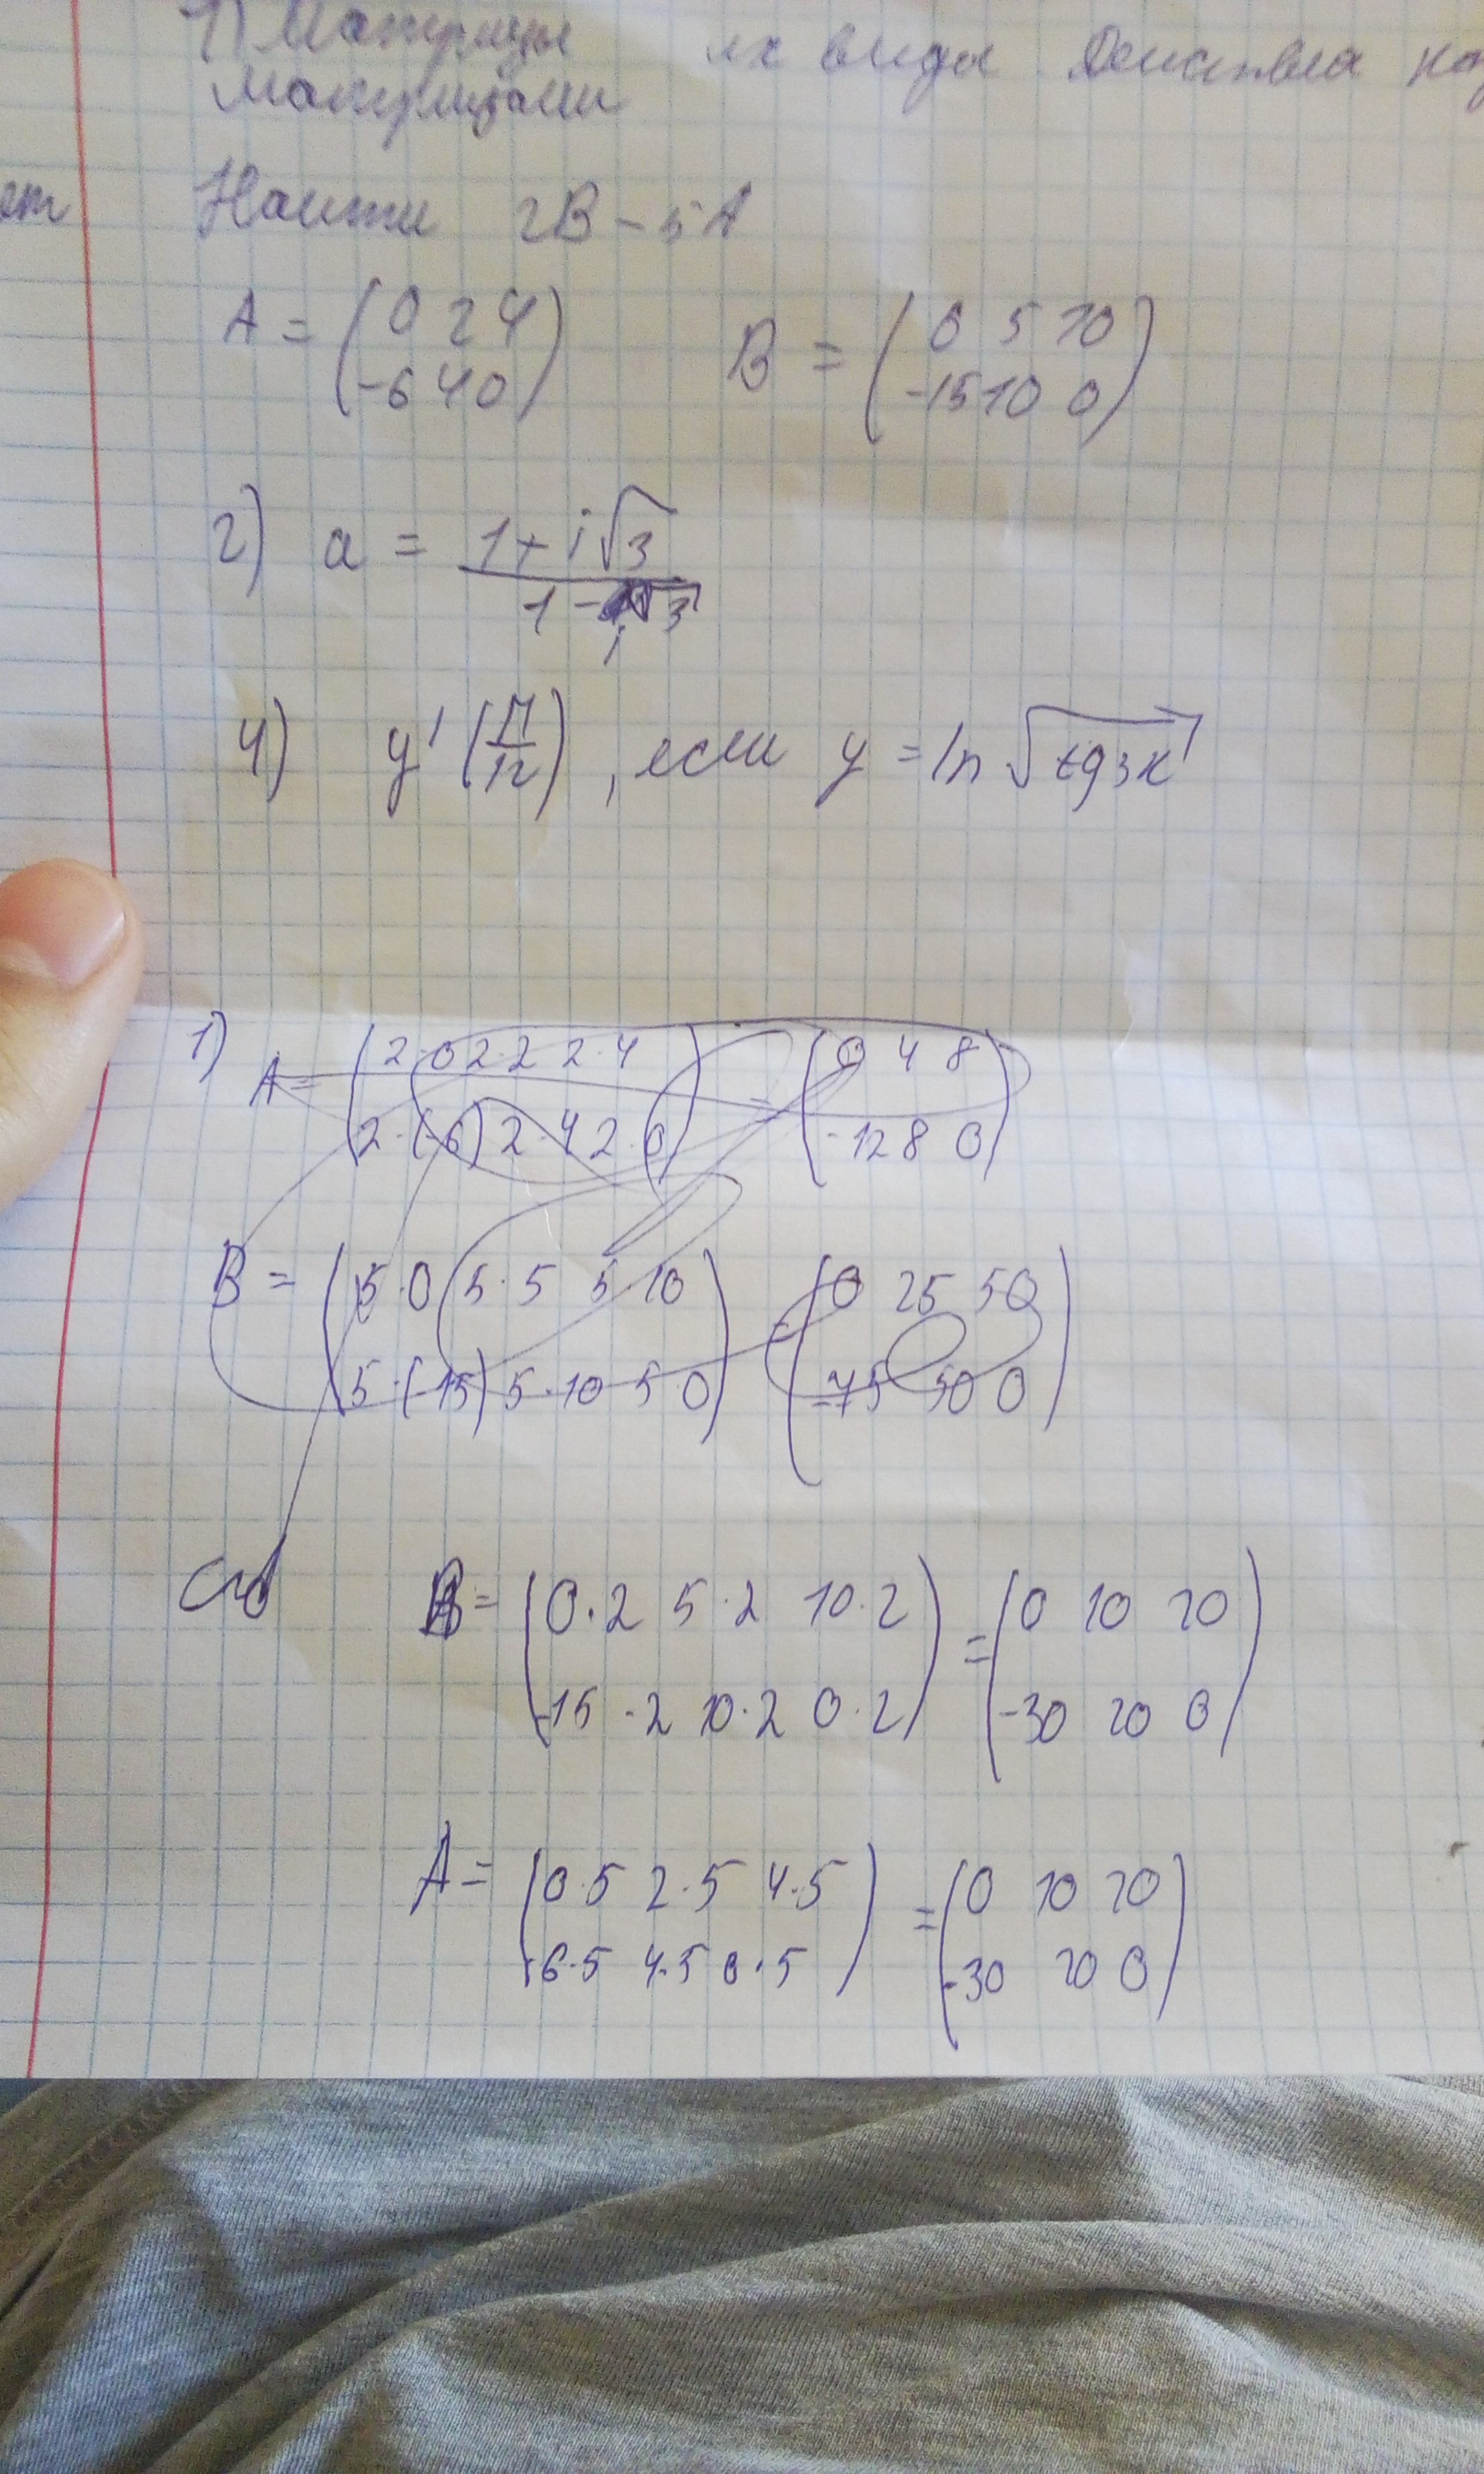 1) Матрицы их виды Действия на
матрицами
Найти 2B - 5A
A = (0 2 4
-6 4 0) B = (0 5 10
-15 10 0)
2) a = 1+i√3
1-i√3
4) y' (π/12), если y = ln √tg3x
1) A = (2·0 2·2 2·4
2·(-6) 2·4 2·0) = (0 4 8
-12 8 0)
B = (5·0 5·5 5·10
5·(-15) 5·10 5·0) = (0 25 50
-75 50 0)
B = (0·2 5·2 10·2
-15·2 10·2 0·2) = (0 10 20
-30 20 0)
A = (0·5 2·5 4·5
-6·5 4·5 0·5) = (0 10 20
-30 20 0)